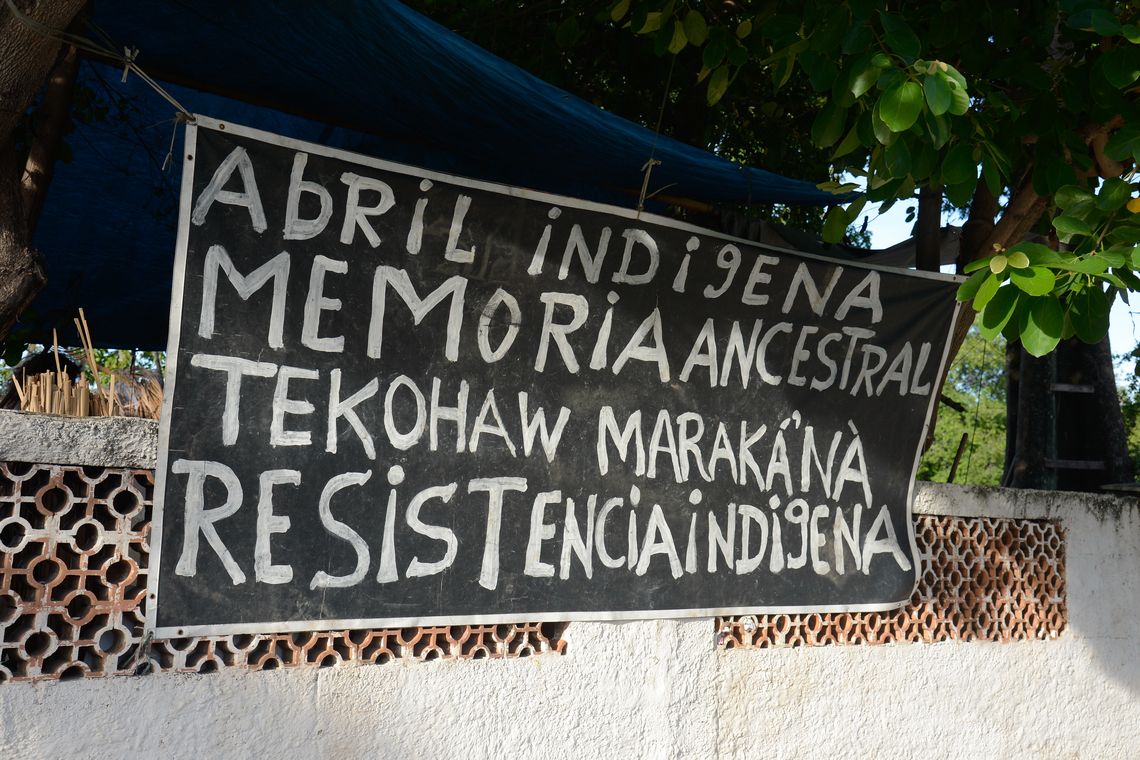 AbRiL iNDigENA
MEMORiA ANCESTRAL
TEKOHAW MARAKÁ'NÀ
RESiSTENCiA iNDigENA